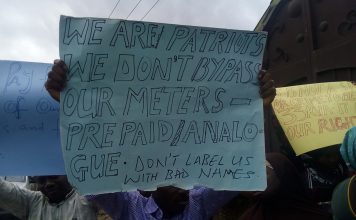 WE ARE PATRIOTS
WE DON'T BYPASS
OUR METERS -
PREPAID/ANALO-
GUE. DON'T LABEL US
WITH BAD NAMES.
of
RIGHT